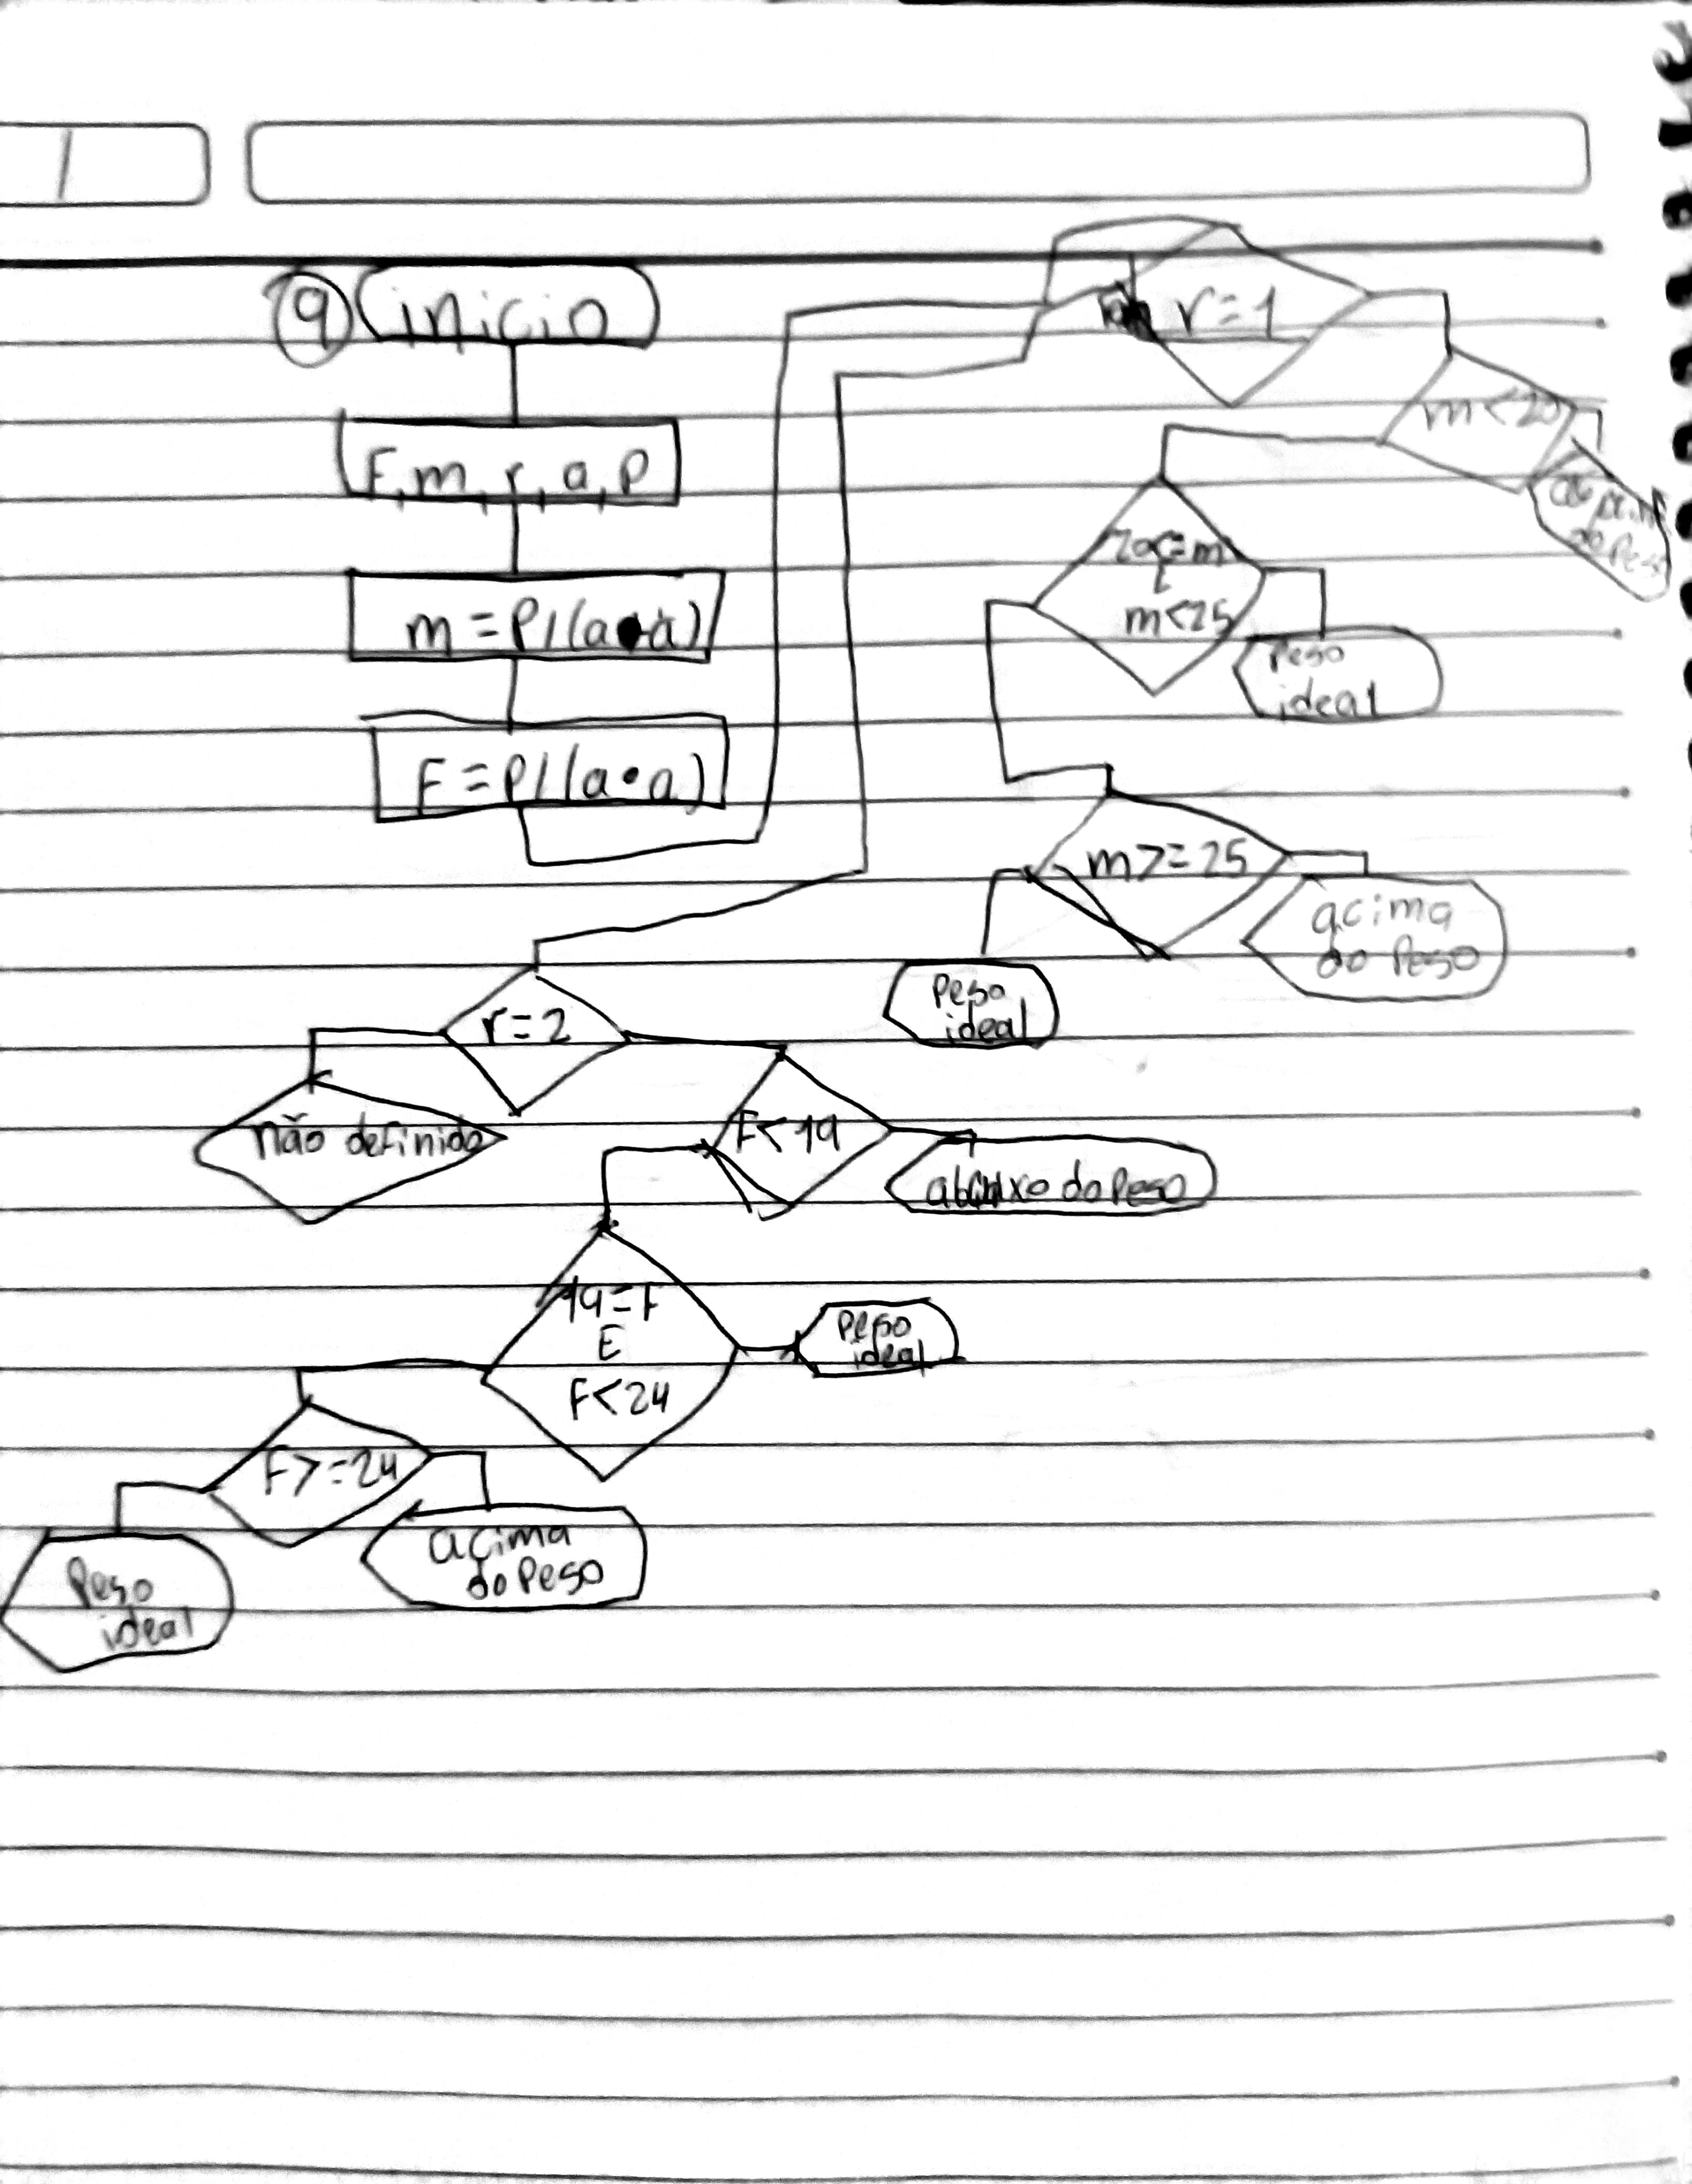 9 inicio
F, m, r, a, P
m = P/(a•a)
F = P/(a•a)
r=1
m<20
do Peso
20<=m
E
m<25
Peso
ideal
m>=25
acima
do Peso
Peso
ideal
r=2
não definido
F<19
abaixo do Peso
19=F
E
F<24
Peso
ideal
F>=24
acima
do Peso
Peso
ideal